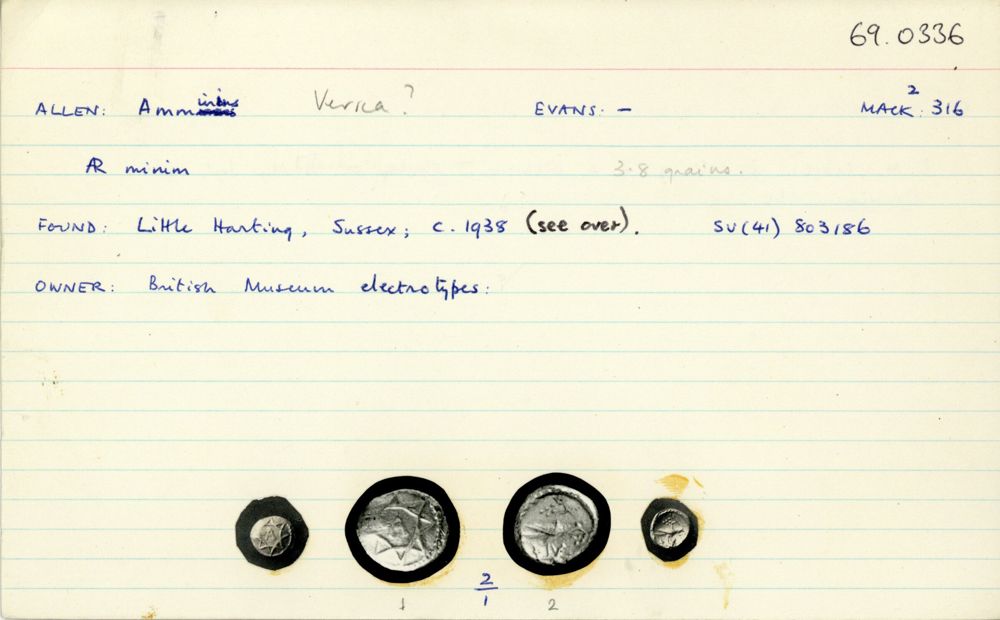 69.0336
ALLEN: Amminius Verica? EVANS: — MACK²: 316
AR minim 3.8 grains.
FOUND: Little Harting, Sussex; c. 1938 (see over). SU(41) 803186
OWNER: British Museum electrotypes:
2/1
1 2